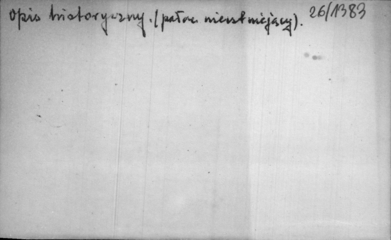 Opis historyczny. (pałac nieistniejący). 26/1383